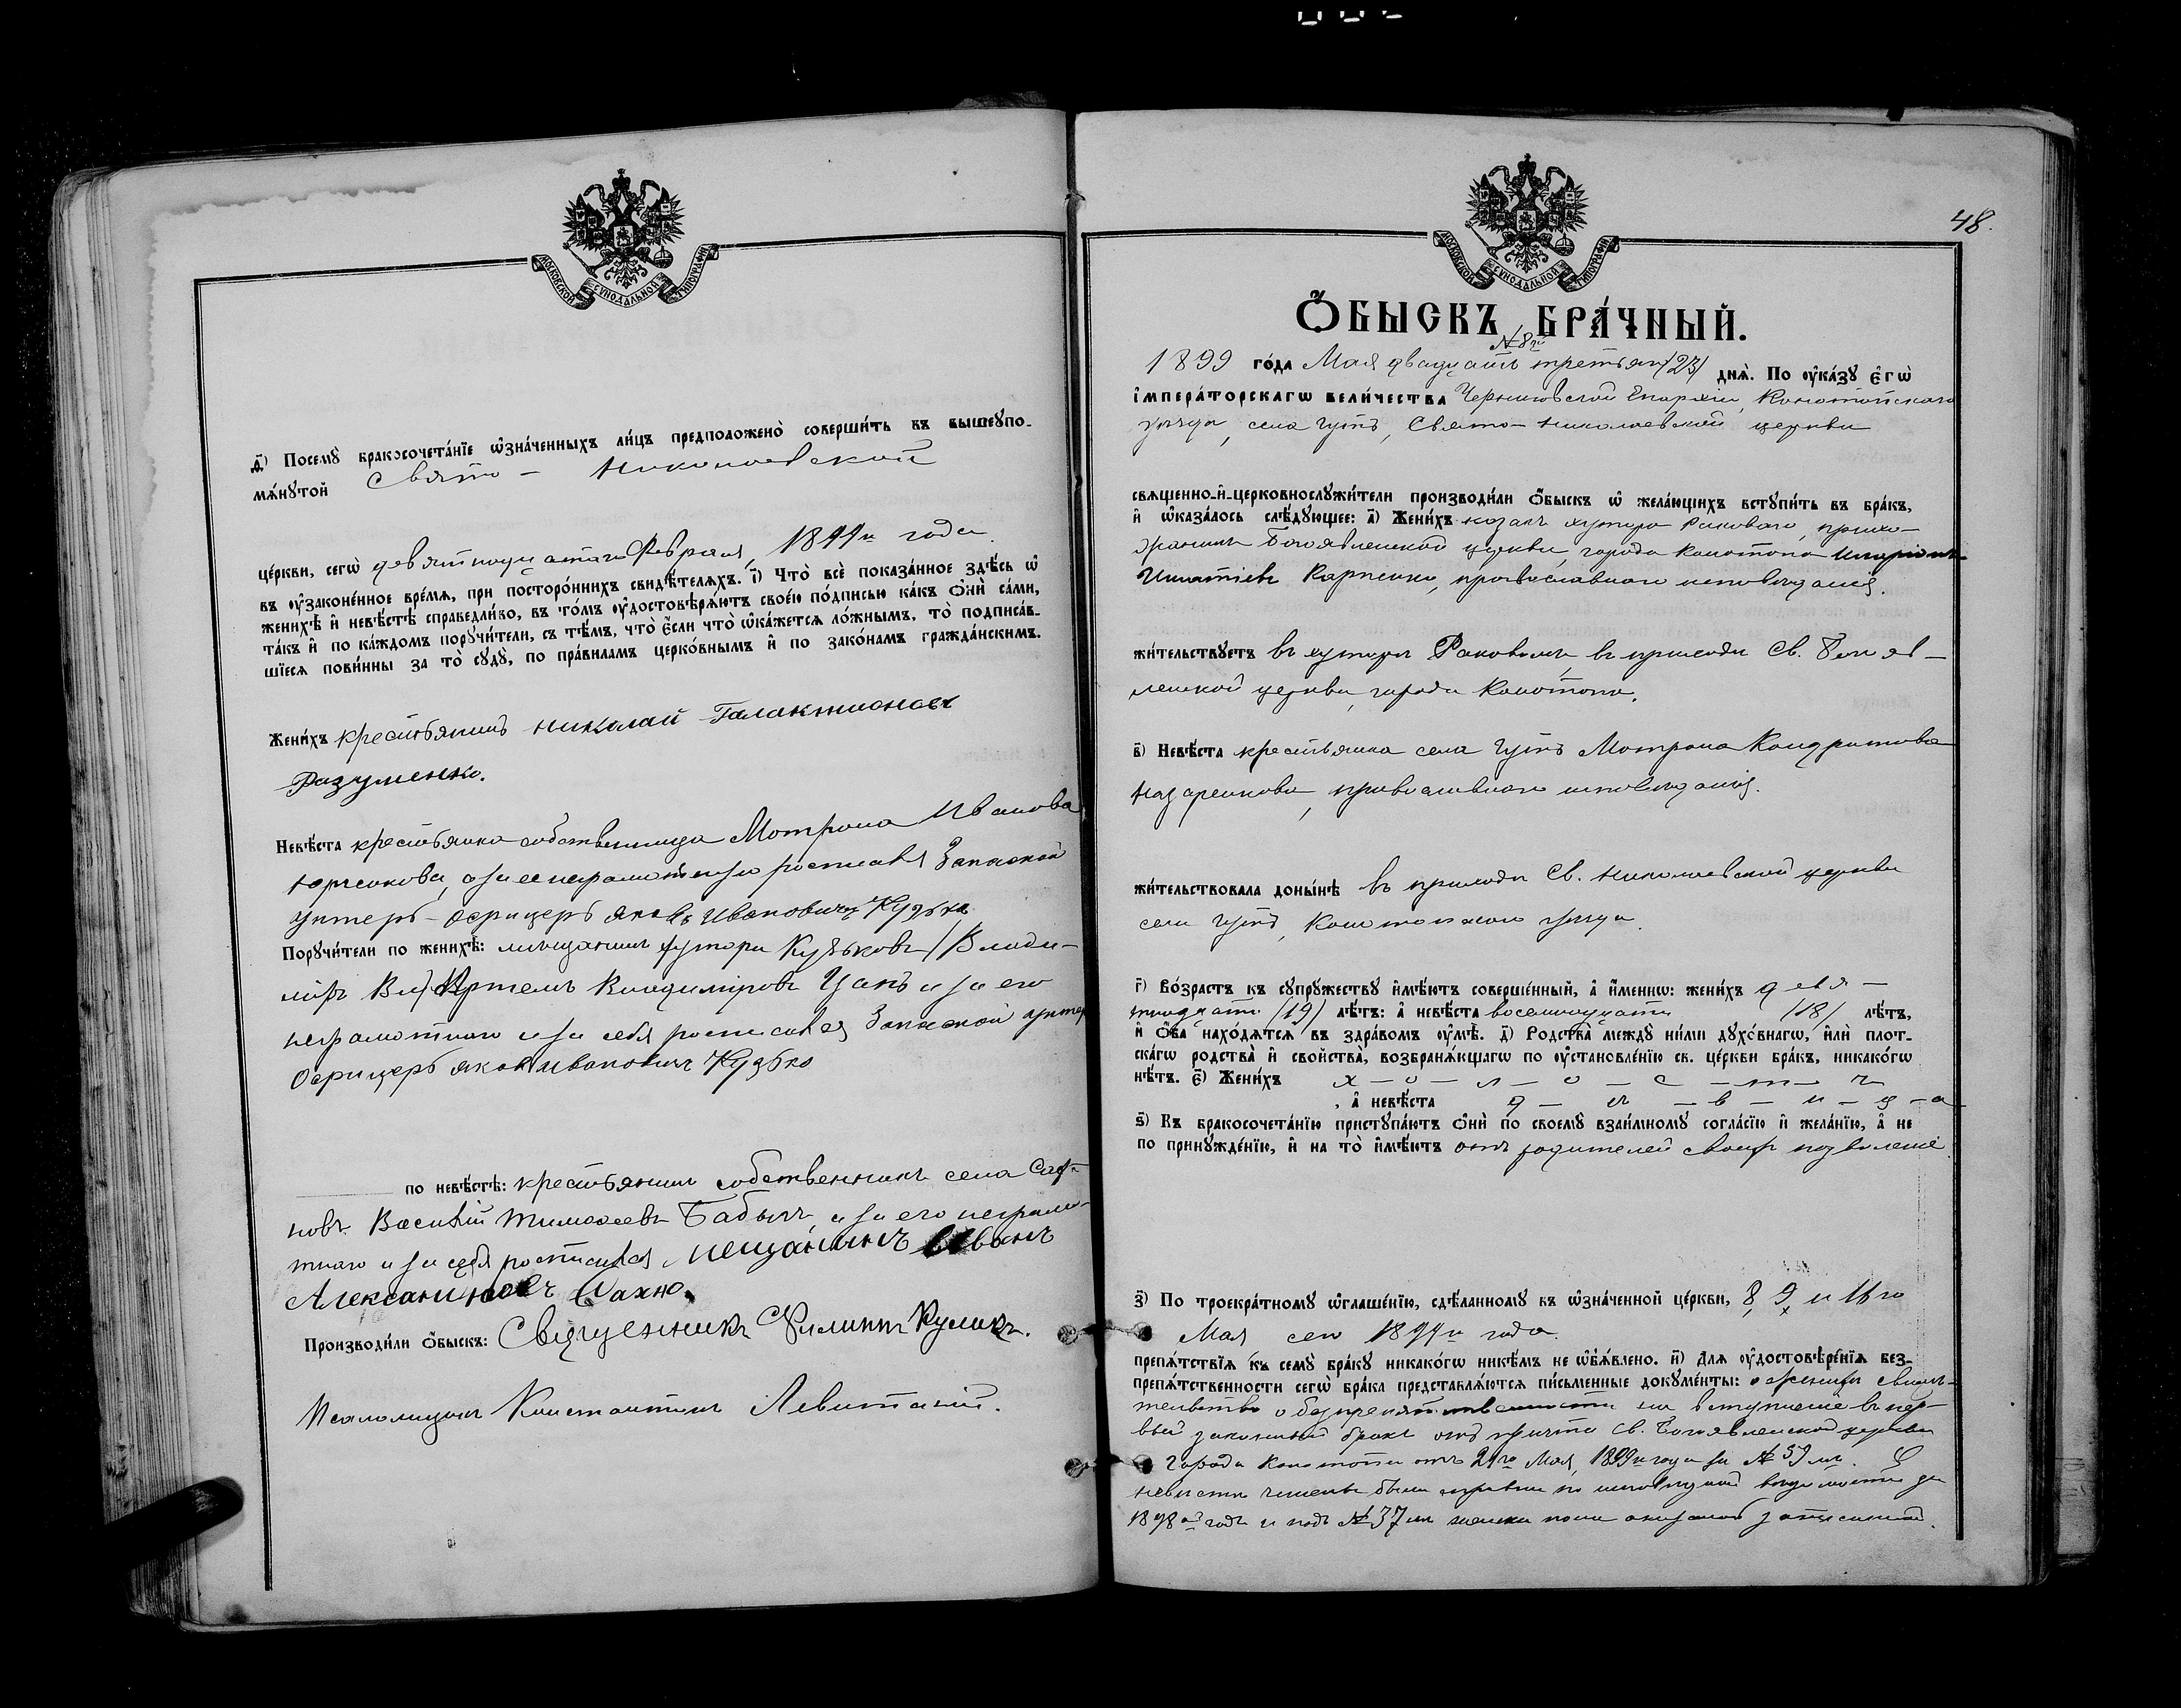 МОСКОВСКОЙ СѴНОДАЛЬНОЙ ТИПОГРАФІИ
д҃) Посемꙋ̀ бракосочета́нїе ѡ҆зна́ченныхъ ли́цъ предположено̀ соверши́ть въ вышеꙋпо-
мѧ́нꙋтой Свято - Николаевской
це́ркви, сегѡ̀ девятнадцатаго Февраля, 1899 го года.
въ ᲂу҆законе́нное вре́мѧ, при посторо́ннихъ свидѣ́телѧхъ. і҃) Что̀ всѐ показа́нное здѣ́сь ѡ҆
женихѣ̀ и҆ невѣ́стѣ справедли́во, въ то́мъ ᲂу҆достовѣрѧ́ютъ свое́ю по́дписью ка́къ ѻ҆нѝ са́ми,
та́къ и҆ по ка́ждомъ порꙋчи́тели, съ тѣ́мъ, что̀ є҆́сли что̀ ѡ҆ка́жетсѧ ло́жнымъ, то̀ подписа́в-
шїесѧ пови́нны за то̀ сꙋдꙋ̀, по пра́виламъ церко́внымъ и҆ по зако́намъ гражда́нскимъ.
Жени́хъ крестьянинъ Николай Галактионовъ
Разуменко.
Невѣ́ста крестьянка собственница Мотрона Иванова
Юрченкова, а за ее неграмотную росписався Запасной
Унтеръ-Офицеръ Яковъ Ивановичъ Кузько
Порꙋчи́тели по женихѣ̀: мещанинъ хутора Кузькова /Влади-
міръ Вл/ Артемъ Владиміровъ Цапъ и за его
неграмотнаго и за себя росписався Запасной Унтер
Офицеръ Яковъ Ивановичъ Кузько
по невѣ́стѣ: крестьянинъ собственникъ села Саф-
новъ Василій Тимофеевъ Бабичъ, и за его неграмо-
тнаго и за себя росписался мещанинъ Иванъ
Александровъ Сахно.
Производи́ли ѻ҆́быскъ: Священникъ Филиппъ Куликъ.
Псаломщикъ Константинъ Левитскій.
48.
МОСКОВСКОЙ СѴНОДАЛЬНОЙ ТИПОГРАФІИ
Ѻ҆БЫСКЪ БРА́ЧНЫЙ.
№ 8й
1899 го́да Мая двадцать третьяго /23/ днѧ̀. По ᲂу҆ка́зꙋ є҆гѡ̀
і҆мпера́торскагѡ вели́чества Черниговской Епархіи, Конотопскаго
уезда, села Гутъ, Свято-Николаевской церкви
свѧщенно-и҆-церковнослꙋжи́тели производи́ли ѻ҆́быскъ ѡ҆ жела́ющихъ встꙋпи́ть въ бра́къ,
и҆ ѡ҆каза́лось слѣ́дꙋющее: а҃) Жени́хъ козакъ хутора Раковаго, прихо-
жанинъ Богоявленской церкви, города Конотопа Иларіонъ
Игнатіевъ Карпенко, православнаго исповеданія.
жи́тельствꙋетъ въ хуторе Раковомъ, въ приходе Св. Богояв-
ленской церкви, города Конотопа.
в҃) Невѣ́ста крестьянка села Гутъ Мотрона Кондратова
Назаренкова, православнаго исповеданія.
жи́тельствовала доны́нѣ въ приходе Св. Николаевской церкви
села Гутъ, Конотопскаго уезда.
г҃) Во́зрастъ къ сꙋпрꙋ́жествꙋ и҆мѣ́ютъ соверше́нный, а҆ и҆́меннѡ: жени́хъ девя-
тнадцати /19/ лѣ́тъ: а҆ невѣ́ста восемнадцати /18/ лѣ́тъ,
и҆ ѻ҆́ба нахо́дѧтсѧ въ здра́вомъ ᲂу҆мѣ̀. д҃) Родства̀ междꙋ ни́ми дꙋхо́внагѡ, и҆лѝ плот-
ска́гѡ родства̀ и҆ свойства̀, возбранѧ́ющагѡ по ᲂу҆становле́нїю св. це́ркви бра́къ, никако́гѡ
нѣ́тъ. є҃) Жени́хъ х — о — л — о — с — т — ъ
, а҆ невѣ́ста д — ѣ — в — и — ц — а
ѕ҃) Къ бракосочета́нїю пристꙋпа́ютъ ѻ҆нѝ по своемꙋ̀ взаи́мномꙋ согла́сїю и҆ жела́нїю, а҆ не
по принꙋжде́нїю, и҆ на то̀ и҆мѣ́ютъ отъ родителей своихъ позволеніе.
з҃) По троекра́тномꙋ ѡ҆глаше́нїю, сдѣ́ланномꙋ въ ѡ҆зна́ченной це́ркви, 8, 9, и 16 го
Мая сего 1899 го года.
препѧ́тствїѧ къ семꙋ̀ бра́кꙋ никако́гѡ никѣ́мъ не ѡ҆б̾ѧ́влено. и҃) Длѧ ᲂу҆достовѣре́нїѧ без-
препѧ́тственности сегѡ̀ бра́ка представлѧ́ютсѧ пи́сьменные докꙋме́нты: о женихе свиде-
тельство о безпрепятственности на вступление въ пер-
вый законный бракъ отъ причта Св. Богоявленской церкви
города Конотопа отъ 21го Мая, 1899го года за № 59 мъ.
невести исповедной ведомости за
1898 й годъ и подъ № 37 мъ записанной.